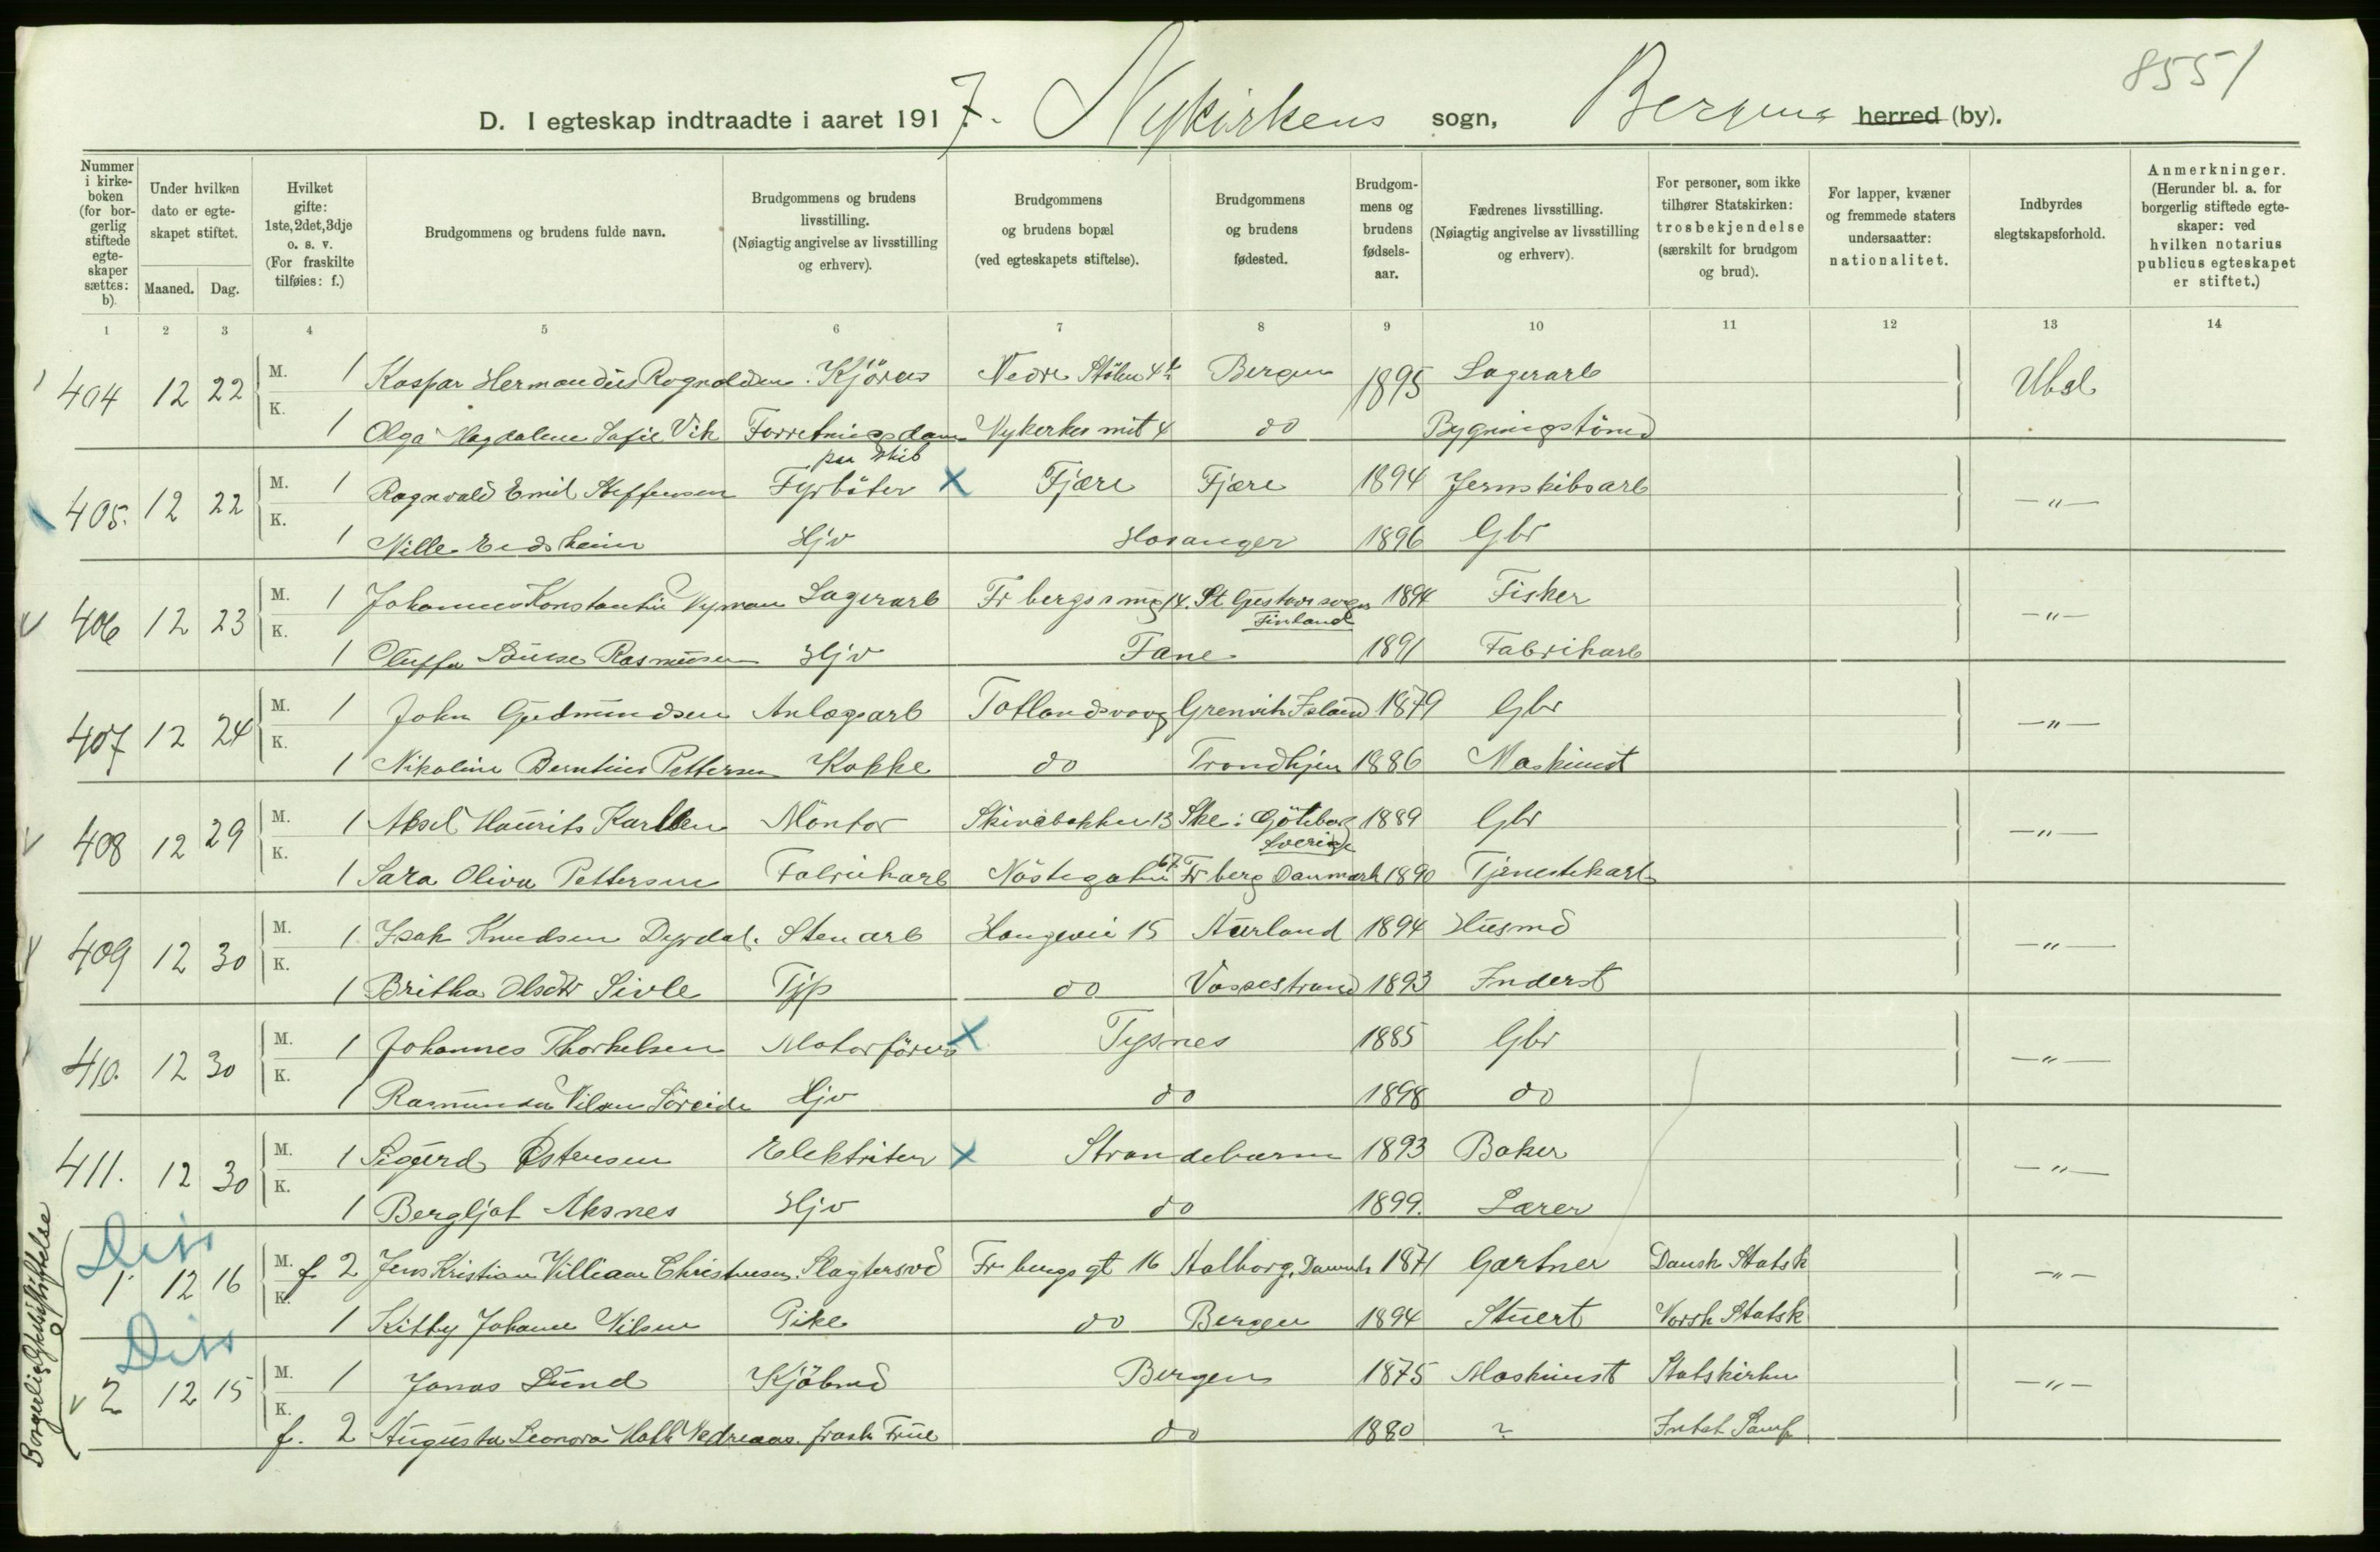 8551
D. I egteskap indtraadte i aaret 1917. Nykirkens sogn, Bergens herred (by).
Nummer i kirkeboken (for borgerlig stiftede egteskaper sættes: b).
Under hvilken dato er egteskapet stiftet.
Maaned. Dag.
Hvilket gifte: 1ste, 2det, 3dje o. s. v. (For fraskilte tilføies: f.)
Brudgommens og brudens fulde navn.
Brudgommens og brudens livsstilling. (Nøiagtig angivelse av livsstilling og erhverv).
Brudgommens og brudens bopæl (ved egteskapets stiftelse).
Brudgommens og brudens fødested.
Brudgommens og brudens fødselsaar.
Fædrenes livsstilling. (Nøiagtig angivelse av livsstilling og erhverv).
For personer, som ikke tilhører Statskirken: trosbekjendelse (særskilt for brudgom og brud).
For lapper, kvæner og fremmede staters undersaatter: nationalitet.
Indbyrdes slegtskapsforhold.
Anmerkninger. (Herunder bl. a. for borgerlig stiftede egteskaper: ved hvilken notarius publicus egteskapet er stiftet.)
1 2 3 4 5 6 7 8 9 10 11 12 13 14
404 12 22 M. 1 Kaspar Hermandus Rognaldsen Kjörer Nedre Stölen 4 b Bergen 1895 Lagerarb Ubsl
K. 1 Olga Magdalene Sofie Vik Forretningsdame Nykerkes mit 4 do Bygningstömd
paa Skib
405. 12 22 M. 1 Ragnvald Emil Steffensen Fyrböter X Fjære Fjære 1894 Jernskibsarb —"—
K. 1 Nille Eidsheim Hjv Hosanger 1896 Gbr
406 12 23 M. 1 Johannes Konstantin Nyman Lagerarb Fr bergs smg 14. St. Gustavs sogn 1894 Fisker —"—
Finland
K. 1 Oluffa Louise Rasmussen Hjv Fane 1891 Fabrikarb
407 12 24 M. 1 John Gudmundsen Anlægsarb Totlandsvaag Grenvik Island 1879 Gbr —"—
K. 1 Nikoline Berntine Pettersen Kokke do Trondhjem 1886 Maskinist
408 12 29 M. 1 Aksel Maurits Karlsen Montör Skivebakken 13 Ske: Göteborg 1889 Gbr —"—
Sverige
K. 1 Sara Oliva Pettersen Fabrikarb Nöstegaten 67 Fr berg Danmark 1890 Tjenestekarl
409 12 30 M. 1 Isak Knudsen Dyrdal. Stenarb Haugevei 15 Aurland 1894 Husmd —"—
K. 1 Britha Olsdtr Sivle Tjp do Vossestrand 1893 Inderst
410. 12 30 M. 1 Johannes Thorkelsen Motorförer X Tysnes 1885 Gbr —"—
K. 1 Rasmunda Nilsen Söreide Hjv do 1898 do
411. 12 30 M. 1 Sigurd Østensen Elektriker X Strandebarm 1893 Baker —"—
K. 1 Bergljot Aksnes Hjv do 1899. Lærer
Borgerlig Egteskapsstiftelse
Diss
1 12 16 M. f. 2 Jens Kristian Villiam Christensen. Slagtersvd Fr bergs gt 16 Aalborg, Danmk 1871 Gartner Dansk Statsk —"—
K. 1 Kitty Johanne Nilsen Pike do Bergen 1894 Stuert Norsk Statsk
Diss
v 2 12 15 M. 1 Jonas Lund Kjöbmd Bergen 1875 Maskinist Statskirken —"—
K. f. 2 Augusta Leonora Hall Nedreaas. frask. Frue do 1880 ? Intet Samf